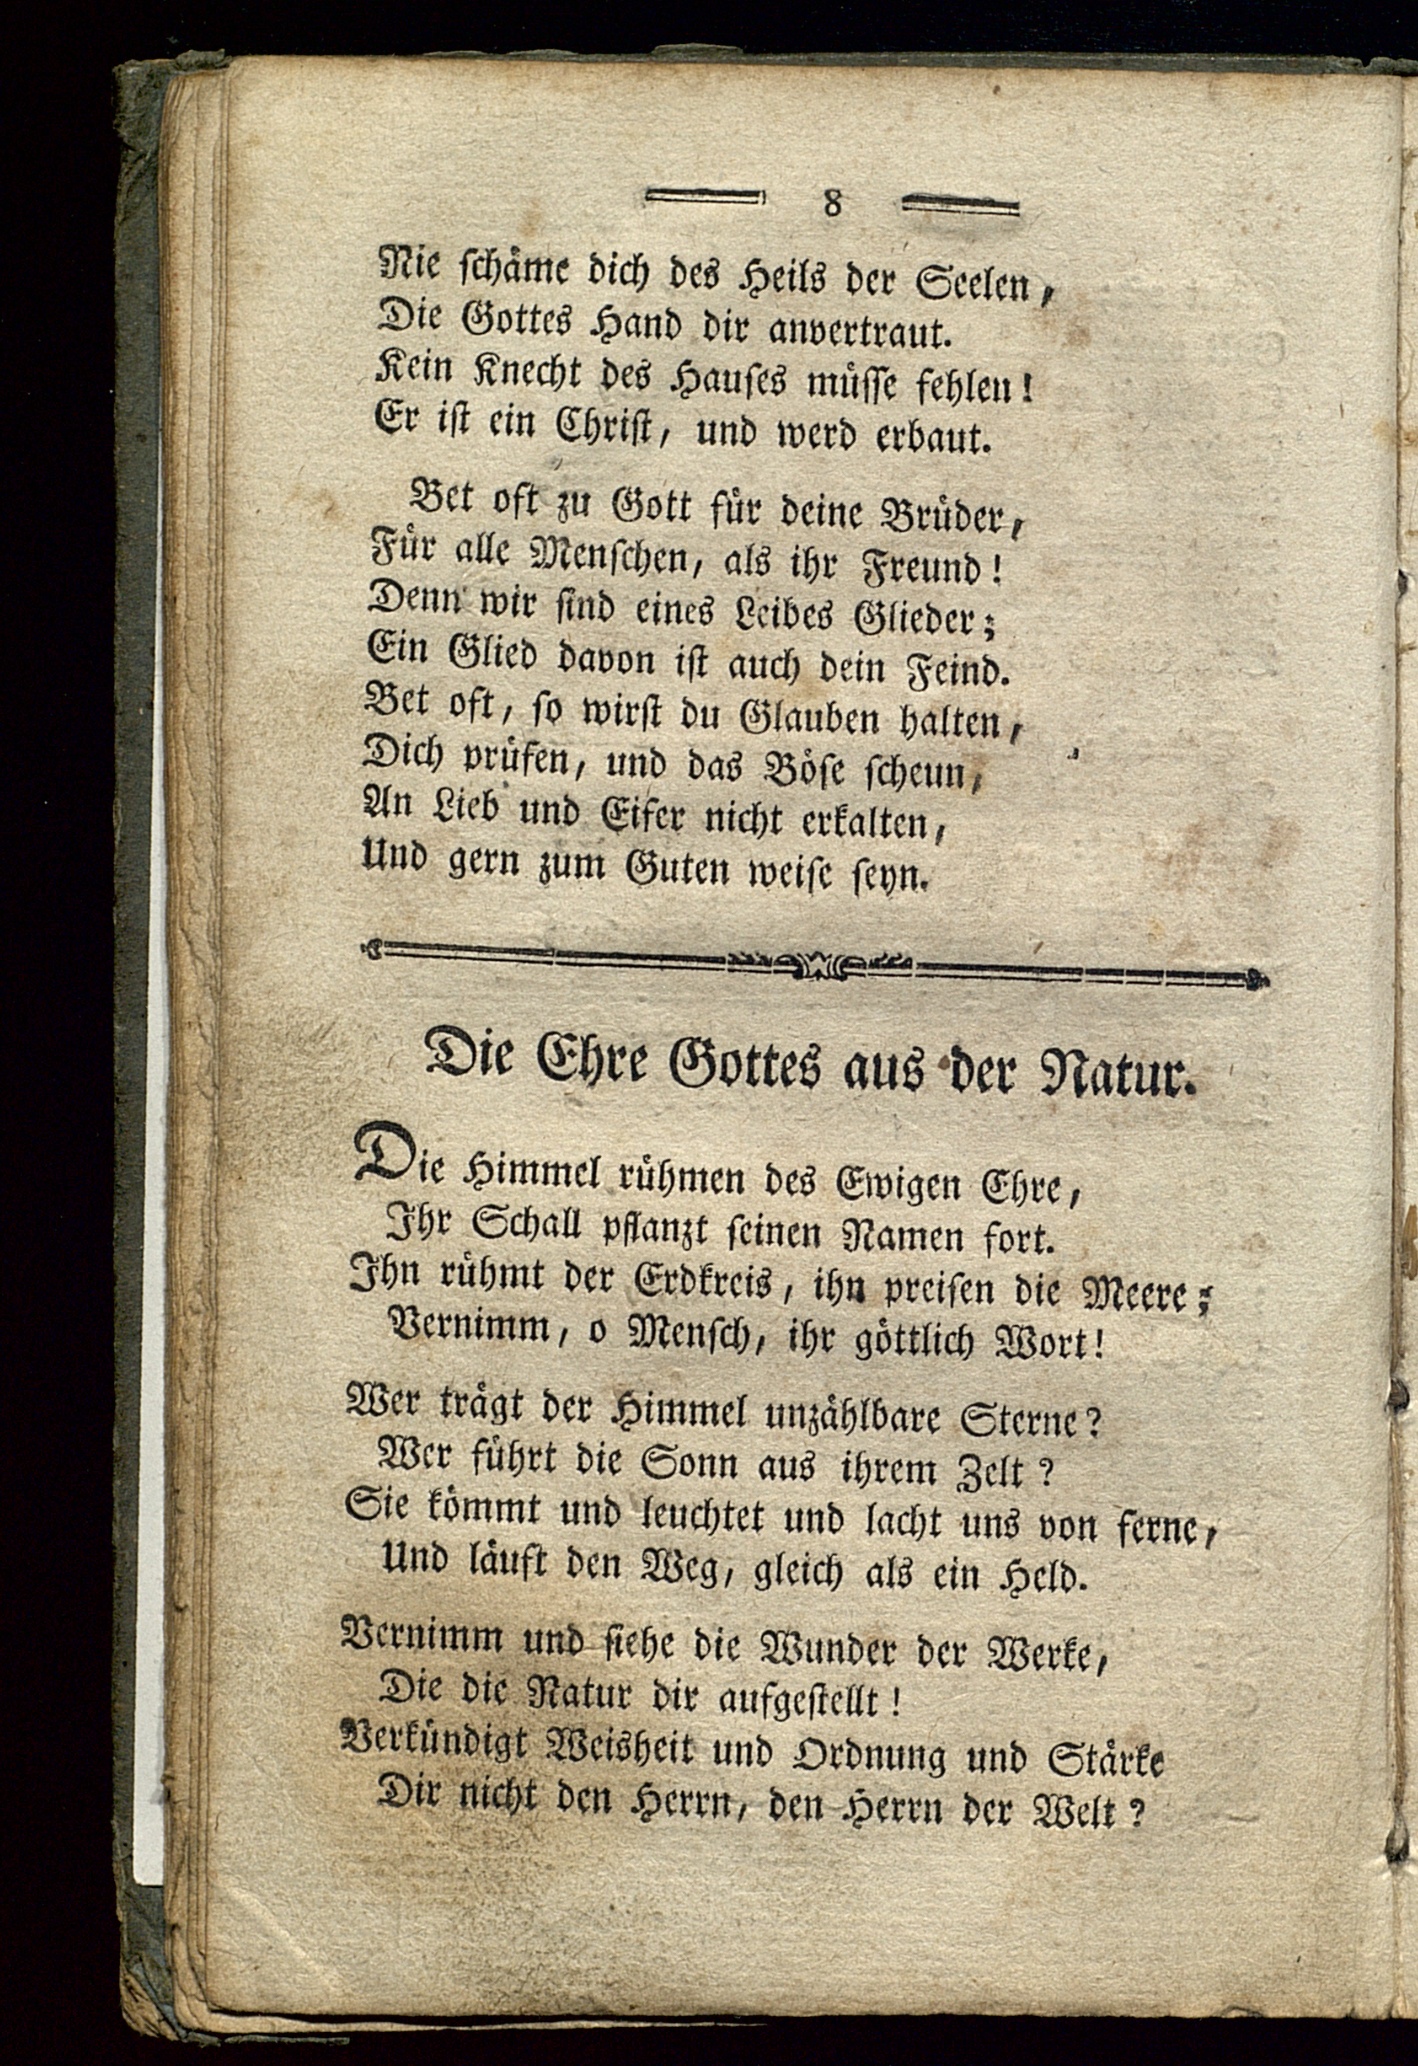 8
Nie schäme dich des Heils der Seelen,
Die Gottes Hand dir anvertraut.
Kein Knecht des Hauses müsse fehlen!
Er ist ein Christ, und werd erbaut.
Bet oft zu Gott für deine Brüder,
Für alle Menschen, als ihr Freund!
Denn wir sind eines Leibes Glieder;
Ein Glied davon ist auch dein Feind.
Bet oft, so wirst du Glauben halten,
Dich prüfen, und das Böse scheun,
An Lieb und Eifer nicht erkalten,
Und gern zum Guten weise seyn.
Die Ehre Gottes aus der Natur.
Die Himmel rühmen des Ewigen Ehre,
Ihr Schall pflanzt seinen Namen fort.
Ihn rühmt der Erdkreis, ihn preisen die Meere;
Vernimm, o Mensch, ihr göttlich Wort!
Wer trägt der Himmel unzählbare Sterne?
Wer führt die Sonn aus ihrem Zelt?
Sie kömmt und leuchtet und lacht uns von ferne,
Und läuft den Weg, gleich als ein Held.
Vernimm und siehe die Wunder der Werke,
Die die Natur dir aufgestellt!
Verkündigt Weisheit und Ordnung und Stärke
Dir nicht den Herrn, den Herrn der Welt?